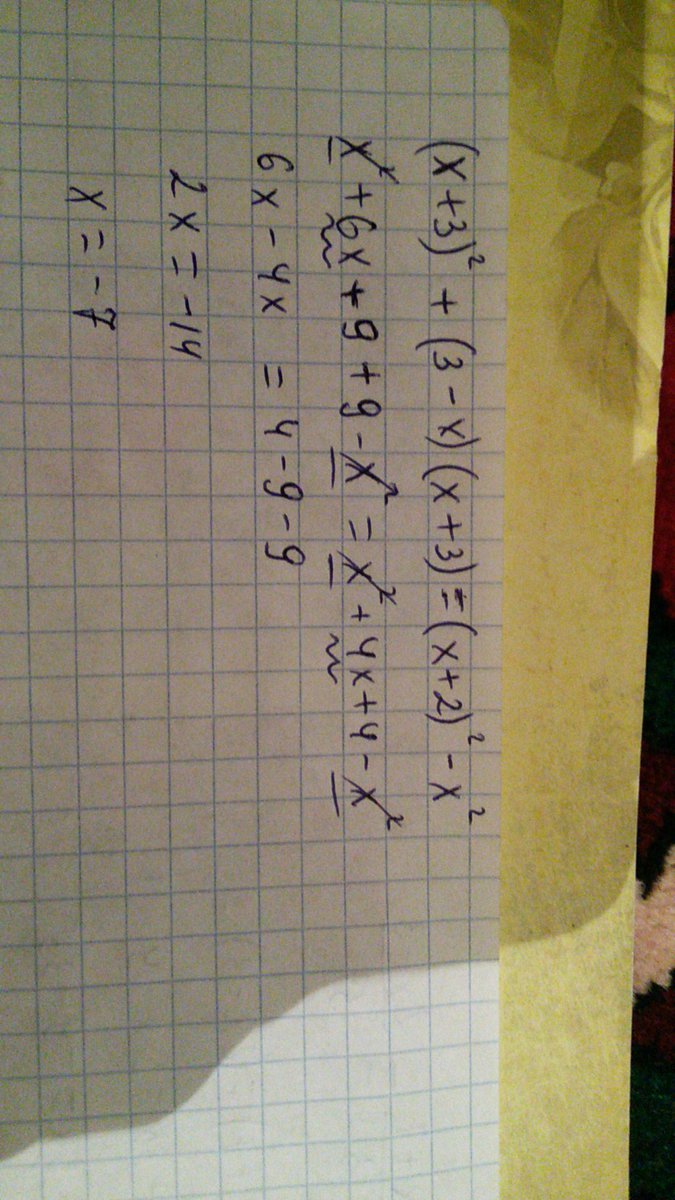 (x+3)² + (3-x)(x+3) = (x+2)² - x²
x² + 6x + 9 + 9 - x² = x² + 4x + 4 - x²
6x - 4x = 4 - 9 - 9
2x = -14
x = -7